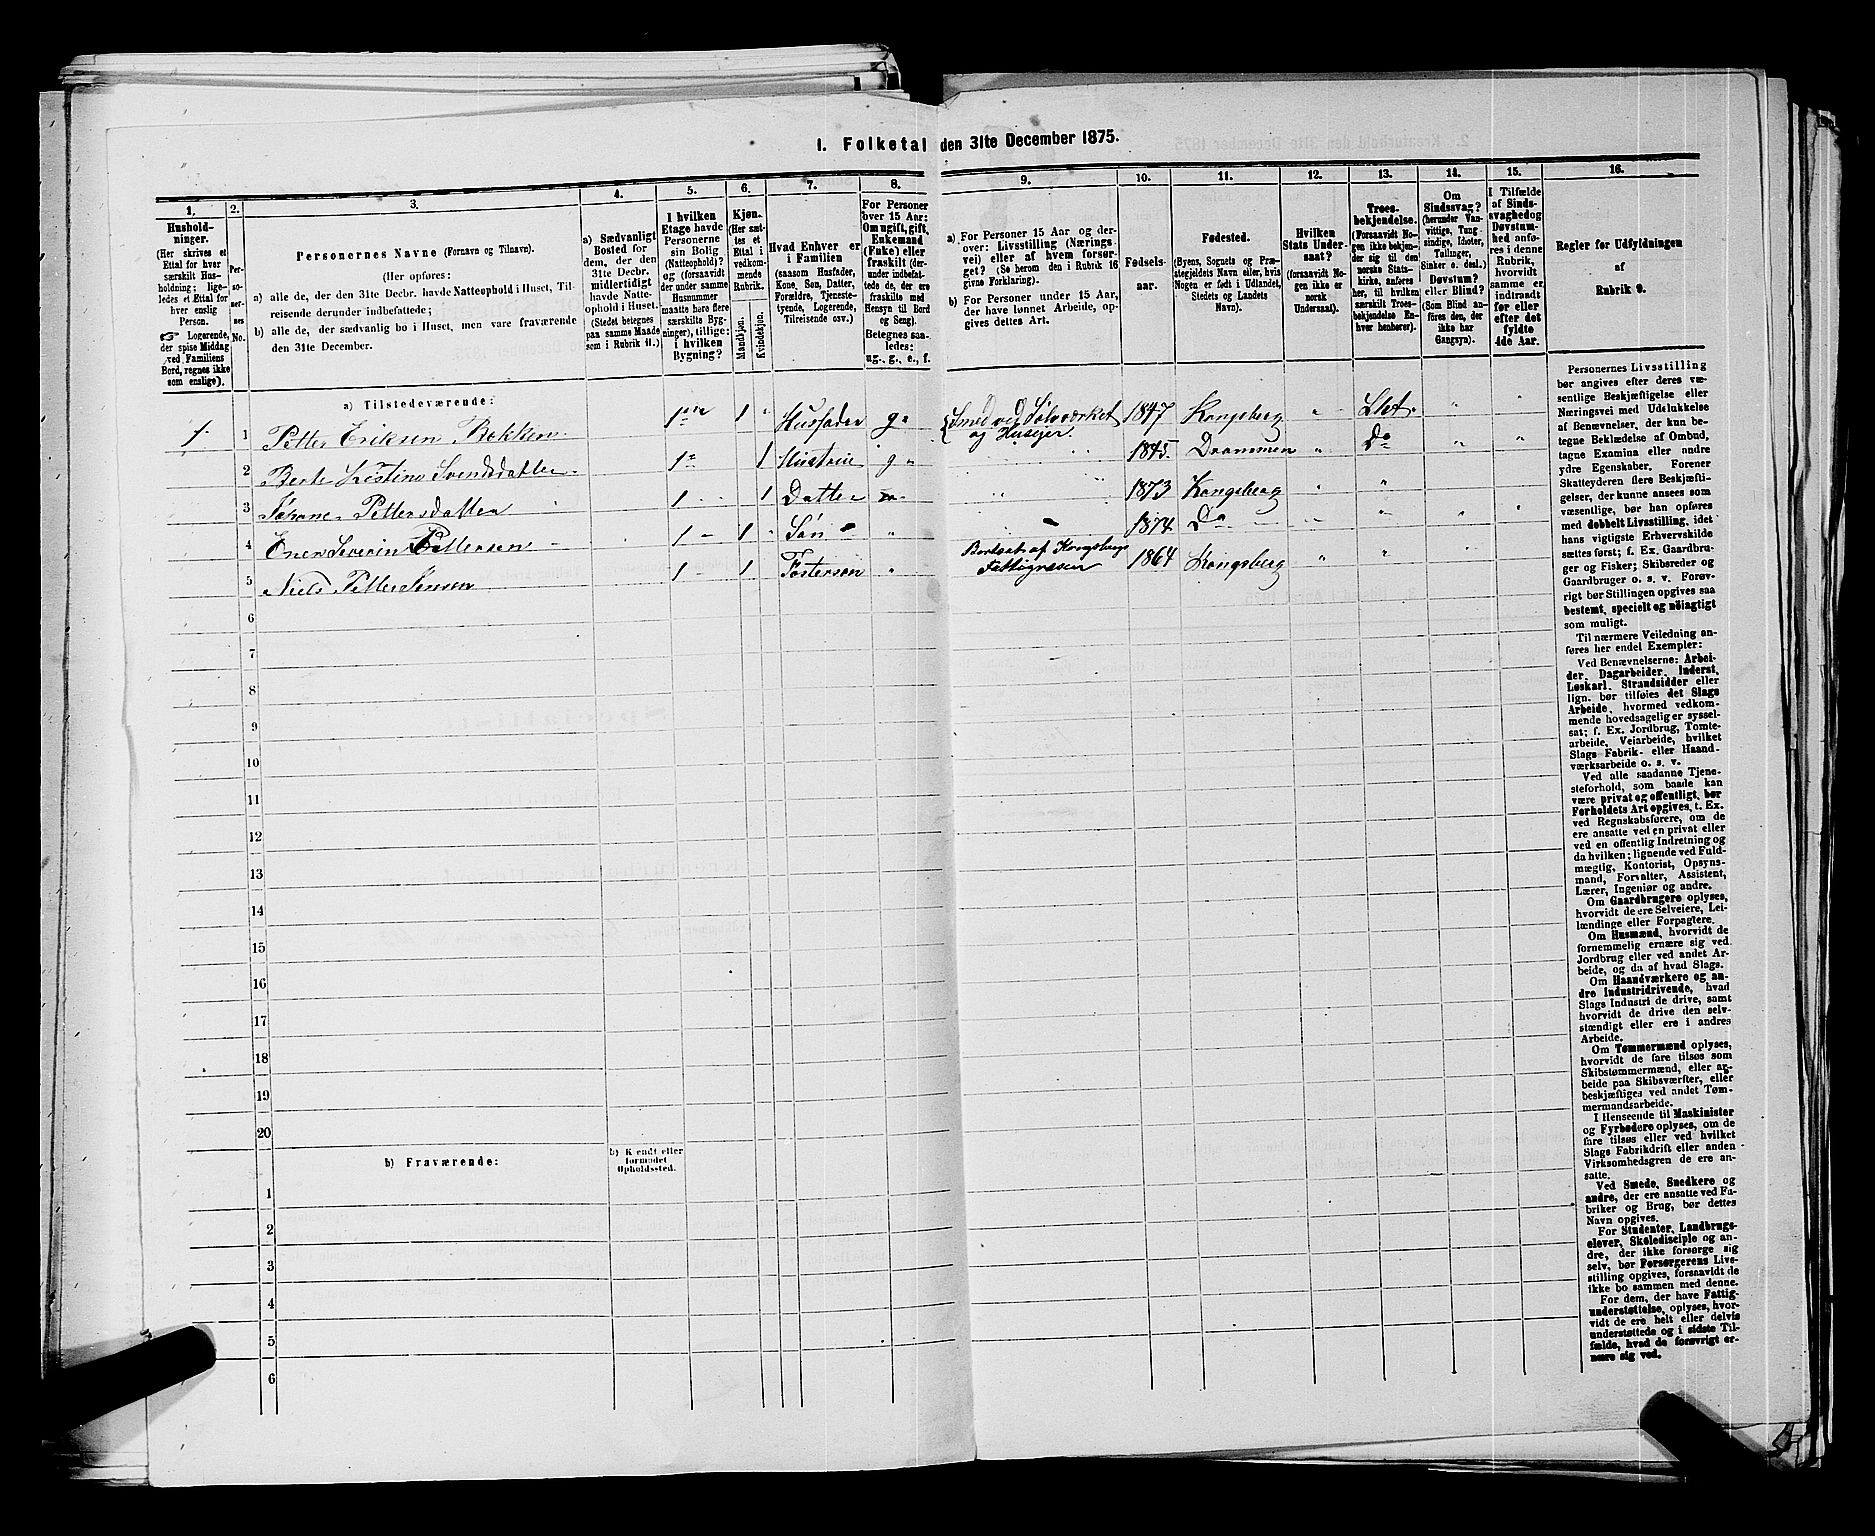 I. Folketal den 31te December 1875.
1. 2. 3. 4. 5. 6. 7. 8. 9. 10. 11. 12. 13. 14. 15. 16.
Husholdninger.
(Her skrives et
Ettal for hver
særskilt Hus-
holdning; lige-
ledes et Ettal for
hver enslig
Person.
☞ Logerende,
der spise Middag
ved Familiens
Bord, regnes ikke
som enslige).
Per-
so-
ner-
nes
No.
Personernes Navne (Fornavn og Tilnavn).
(Her opføres:
a) alle de, der den 31te Decbr. havde Natteophold i Huset, Til-
reisende derunder indbefattede;
b) alle de, der sædvanlig bo i Huset, men vare fraværende
den 31te December.
a) Sædvanligt
Bosted for
dem, der den
31te Decbr.
midlertidigt
havde Natte-
ophold i Huset.
(Stedet betegnes
paa samme Maade
som i Rubrik 11.)
I hvilken
Etage havde
Personerne
sin Bolig
(Natteophold)?
og (forsaavidt
der under samme
Husnummer
maatte høre flere
særskilte Byg-
ninger), tillige:
i hvilken
Bygning?
Kjøn.
(Her sæt-
tes et
Ettal i
vedkom-
mende
Rubrik.
Mandkjøn.
Kvindekjøn.
Hvad Enhver er
i Familien
(saasom Husfader,
Kone, Søn, Datter,
Forældre, Tjeneste-
tyende, Logerende,
Tilreisende osv.)
For Personer
over 15 Aar:
Om ugift, gift,
Enkemand
(Enke) eller
fraskilt (der-
under indbefat-
tede de, der ere
fraskilte med
Hensyn til Bord
og Seng).
Betegnes saa-
ledes:
ug., g., e., f.
a) For Personer 15 Aar og der-
over: Livsstilling (Nærings-
vei) eller af hvem forsør-
get? (Se herom den i Rubrik 16
givne Forklaring).
b) For Personer under 15 Aar,
der have lønnet Arbeide, op-
gives dettes Art.
Fødsels-
aar.
Fødested.
(Byens, Sognets og Præ-
stegjeldets Navn eller, hvis
Nogen er født i Udlandet,
Stedets og Landets
Navn).
Hvilken
Stats Under-
saat?
(forsaavidt No-
gen ikke er
norsk
Undersaat).
Troes-
bekjendelse.
(Forsaavidt No-
gen ikke bekjen-
der sig til den
norske Stats-
kirke, anføres
her, til hvilken
særskilt Troes-
bekjendelse En-
hver henhører).
Om
Sindssvag?
(herunder Van-
vittige, Tung-
sindige, Idioter,
Tullinger,
Sinker o. desl.)
Døvstum?
eller Blind?
(Som Blind an-
føres den, der
ikke har
Gangsyn).
I Tilfælde
af Sinds-
svaghed og
Døvstum-
hed anfø-
res i denne
Rubrik,
hvorvidt
samme er
indtraadt
før eller
efter det
fyldte
4de Aar.
Regler for Udfyldningen
af
Rubrik 9.
a) Tilstedeværende:
1. 1 Petter Eriksen Bakken 1ste 1 " Husfader g " Smed ved Sølvværket 1847 Kongsberg " Stat. " "
og Huseier.
2 Berte Kristine Svendsdatter 1 1 Hustru g " 1845 Drammen " Do " "
3 Johane Pettersdatter 1 1 Datter 1873 Kongsberg " "
4 Severin Pettersen 1 1 " Søn " 1874 Do " " " "
5 Niels Petter Jensen 1 1 Fostersøn " Bortsat af Kongsbergs 1864 Kongsberg " " "
Fattigvæsen
6
7
8
9
10
11
12
13
14
15
16
17
18
19
20
b) Fraværende:
b) Kendt eller
formodet
Opholdssted.
1
2
3
4
5
6
Personernes Livsstilling
bør angives efter deres væ-
sentlige Beskjæftigelse eller
Næringsvei med Udelukkelse
af Benævnelser, der kun be-
tegne Beklædelse af Ombud,
tagne Examina eller andre
ydre Egenskaber. Forener
Skatteyderen flere Beskjæfti-
gelser, der kunne ansees som
væsentlige, bør han opføres
med dobbelt Livsstilling, idet
hans vigtigste Erhvervskilde
sættes først; f. Ex. Gaardbru-
ger og Fisker; Skibsreder og
Gaardbruger o. s. v. Forøv-
rigt bør Stillingen opgives saa
bestemt, specielt og nöiagtigt
som muligt.
Til nærmere Veiledning an-
føres her endel Exempler:
Ved Benævnelserne: Arbei-
der, Dagarbeider, Inderst,
Løskarl, Strandsidder eller
lign. bør tilføies det Slags
Arbeide, hvormed vedkom-
mende hovedsagelig er syssel-
sat; f. Ex. Jordbrug, Tomte-
arbeide, Veiarbeide, hvilket
Slags Fabrik- eller Haand-
værksarbeide o. s. v.
Ved alle saadanne Tjene-
steforhold, som baade kan
være privat og offentligt, bør
Forholdets Art opgives, t. Ex.
ved Regnskabsførere, om de
ere ansatte ved en privat eller
ved en offentlig Indretning og
da hvilken; lignende ved Fuld-
mægtig, Kontorist, Opsyns-
mand, Forvalter, Assistent,
Lærer, Ingeniør og andre.
Om Gaardbrugere oplyses,
hvorvidt de ere Selveiere, Lei-
lændinge eller Forpagtere.
Om Husmænd, hvorvidt de
fornemmelig ernære sig ved
Jordbrug eller ved andet Ar-
beide, og da af hvad Slags.
Om Haandværkere og an-
dre Industridrivende, hvad
Slags Industri de drive, samt
hvorvidt de drive den selv-
stændigt eller ere i andres
Arbeide.
Om Tømmermænd oplyses,
hvorvidt de fare tilsøs som
Skibstømmermænd, eller ar-
beide paa Skibsværfter, eller
beskjæftiges ved andet Tøm-
mermandsarbeide.
I Henseende til Maskinister
og Fyrbødere oplyses, om de
fare tilsøs eller ved hvilket
Slags Fabrikdrift eller anden
Virksomhedsgren de ere an-
satte.
Ved Smede, Snedkere og
andre, der ere ansatte ved Fa-
briker og Brug, bør dettes
Navn opgives.
For Studenter, Landbrugs-
elever, Skoledisciple og an-
dre, der ikke forsørge sig
selv, bør Forsørgerens Livs-
stilling opgives, forsaavidt de
ikke bo sammen med denne.
For dem, der have Fattig-
understøttelse, oplyses, hvor-
vidt de ere helt eller delvis
understøttede og i sidste Til-
fælde, hvad de forøvrigt er-
nære sig ved.